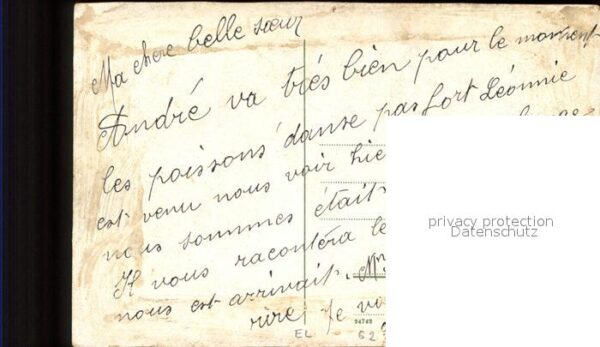 Ma chere belle sœur
André va trés bien pour le moment
les poissons danse pas fort Léonnie
est venu nous voir hie
nous sommes était
Il vous racontéra le
nous est arrivait. Mr
rire, Je vo
24742
EL 62
privacy protection
Datenschutz